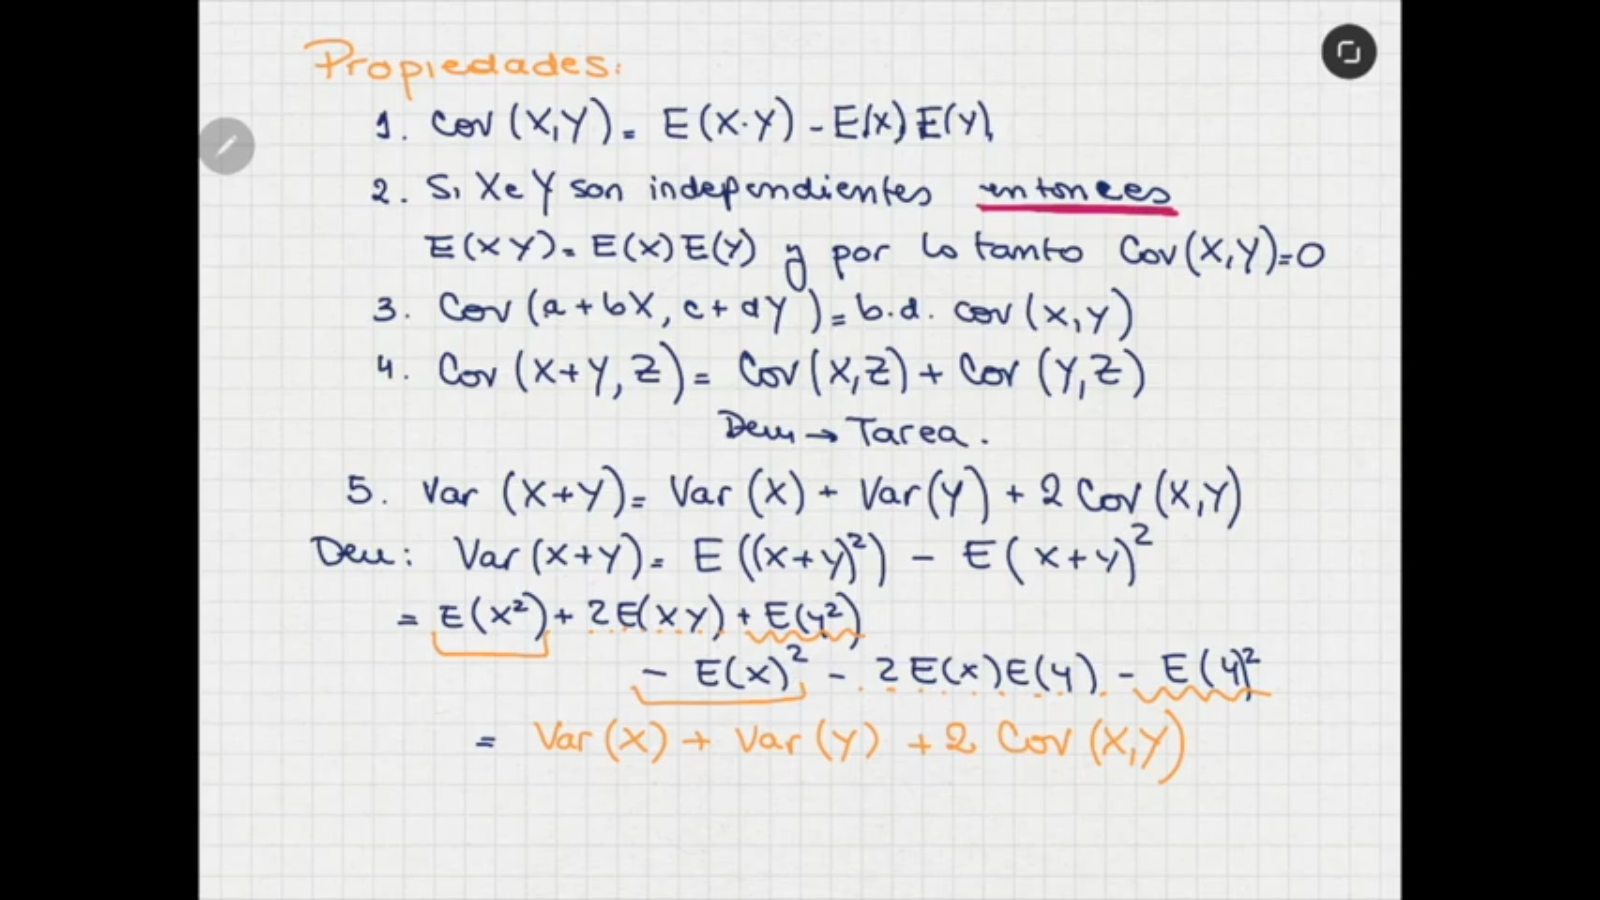 Propiedades:
1. Cov (X,Y) = E(X·Y) - E(X) E(Y)
2. Si X e Y son independientes entonces
E(XY) = E(X) E(Y) y por lo tanto Cov(X,Y)=0
3. Cov (a+bX, c+dY) = b.d. cov(X,Y)
4. Cov (X+Y, Z) = Cov (X,Z) + Cov (Y,Z)
Dem → Tarea.
5. Var (X+Y) = Var (X) + Var (Y) + 2 Cov (X,Y)
Dem: Var (X+Y) = E((X+Y)²) - E(X+Y)²
= E(X²) + 2E(XY) + E(Y²)
- E(X)² - 2E(X)E(Y) - E(Y)²
= Var (X) + Var (Y) + 2 Cov (X,Y)